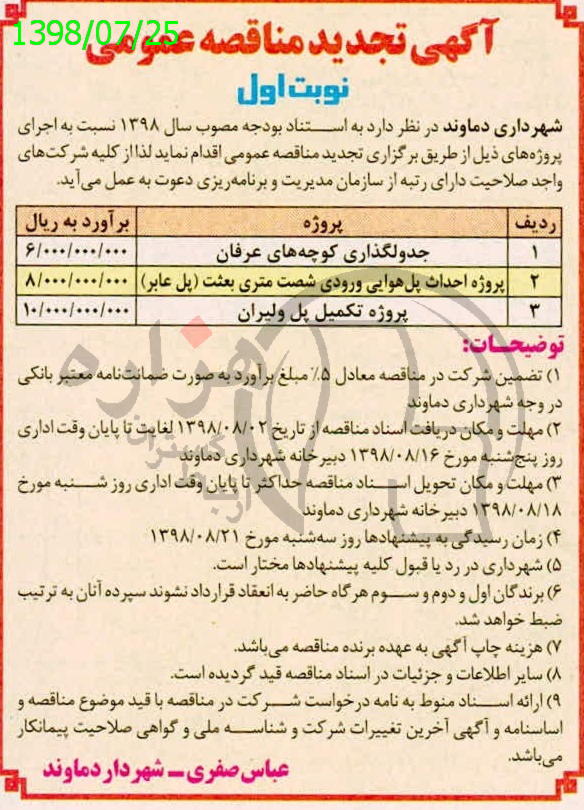 1398/07/25
آگهی تجدید مناقصه عمومی
نوبت اول
شهرداری دماوند در نظر دارد به استناد بودجه مصوب سال ۱۳۹۸ نسبت به اجرای
پروژه‌های ذیل از طریق برگزاری تجدید مناقصه عمومی اقدام نماید لذا از کلیه شرکت‌های
واجد صلاحیت دارای رتبه از سازمان مدیریت و برنامه‌ریزی دعوت به عمل می‌آید.
ردیف پروژه برآورد به ریال
۱ جدولگذاری کوچه‌های عرفان ۶/۰۰۰/۰۰۰/۰۰۰
۲ پروژه احداث پل هوایی ورودی شصت متری بعثت (پل عابر) ۸/۰۰۰/۰۰۰/۰۰۰
۳ پروژه تکمیل پل ولیران ۱۰/۰۰۰/۰۰۰/۰۰۰
توضیحات:
۱) تضمین شرکت در مناقصه معادل ۵٪ مبلغ برآورد به صورت ضمانت‌نامه معتبر بانکی
در وجه شهرداری دماوند
۲) مهلت و مکان دریافت اسناد مناقصه از تاریخ ۱۳۹۸/۰۸/۰۲ لغایت تا پایان وقت اداری
روز پنج‌شنبه مورخ ۱۳۹۸/۰۸/۱۶ دبیرخانه شهرداری دماوند
۳) مهلت و مکان تحویل اسناد مناقصه حداکثر تا پایان وقت اداری روز شنبه مورخ
۱۳۹۸/۰۸/۱۸ دبیرخانه شهرداری دماوند
۴) زمان رسیدگی به پیشنهادها روز سه‌شنبه مورخ ۱۳۹۸/۰۸/۲۱
۵) شهرداری در رد یا قبول کلیه پیشنهادها مختار است.
۶) برندگان اول و دوم و سوم هرگاه حاضر به انعقاد قرارداد نشوند سپرده آنان به ترتیب
ضبط خواهد شد.
۷) هزینه چاپ آگهی به عهده برنده مناقصه می‌باشد.
۸) سایر اطلاعات و جزئیات در اسناد مناقصه قید گردیده است.
۹) ارائه اسناد منوط به نامه درخواست شرکت در مناقصه با قید موضوع مناقصه و
اساسنامه و آگهی آخرین تغییرات شرکت و شناسه ملی و گواهی صلاحیت پیمانکار
می‌باشد.
عباس صفری - شهردار دماوند
هزاره